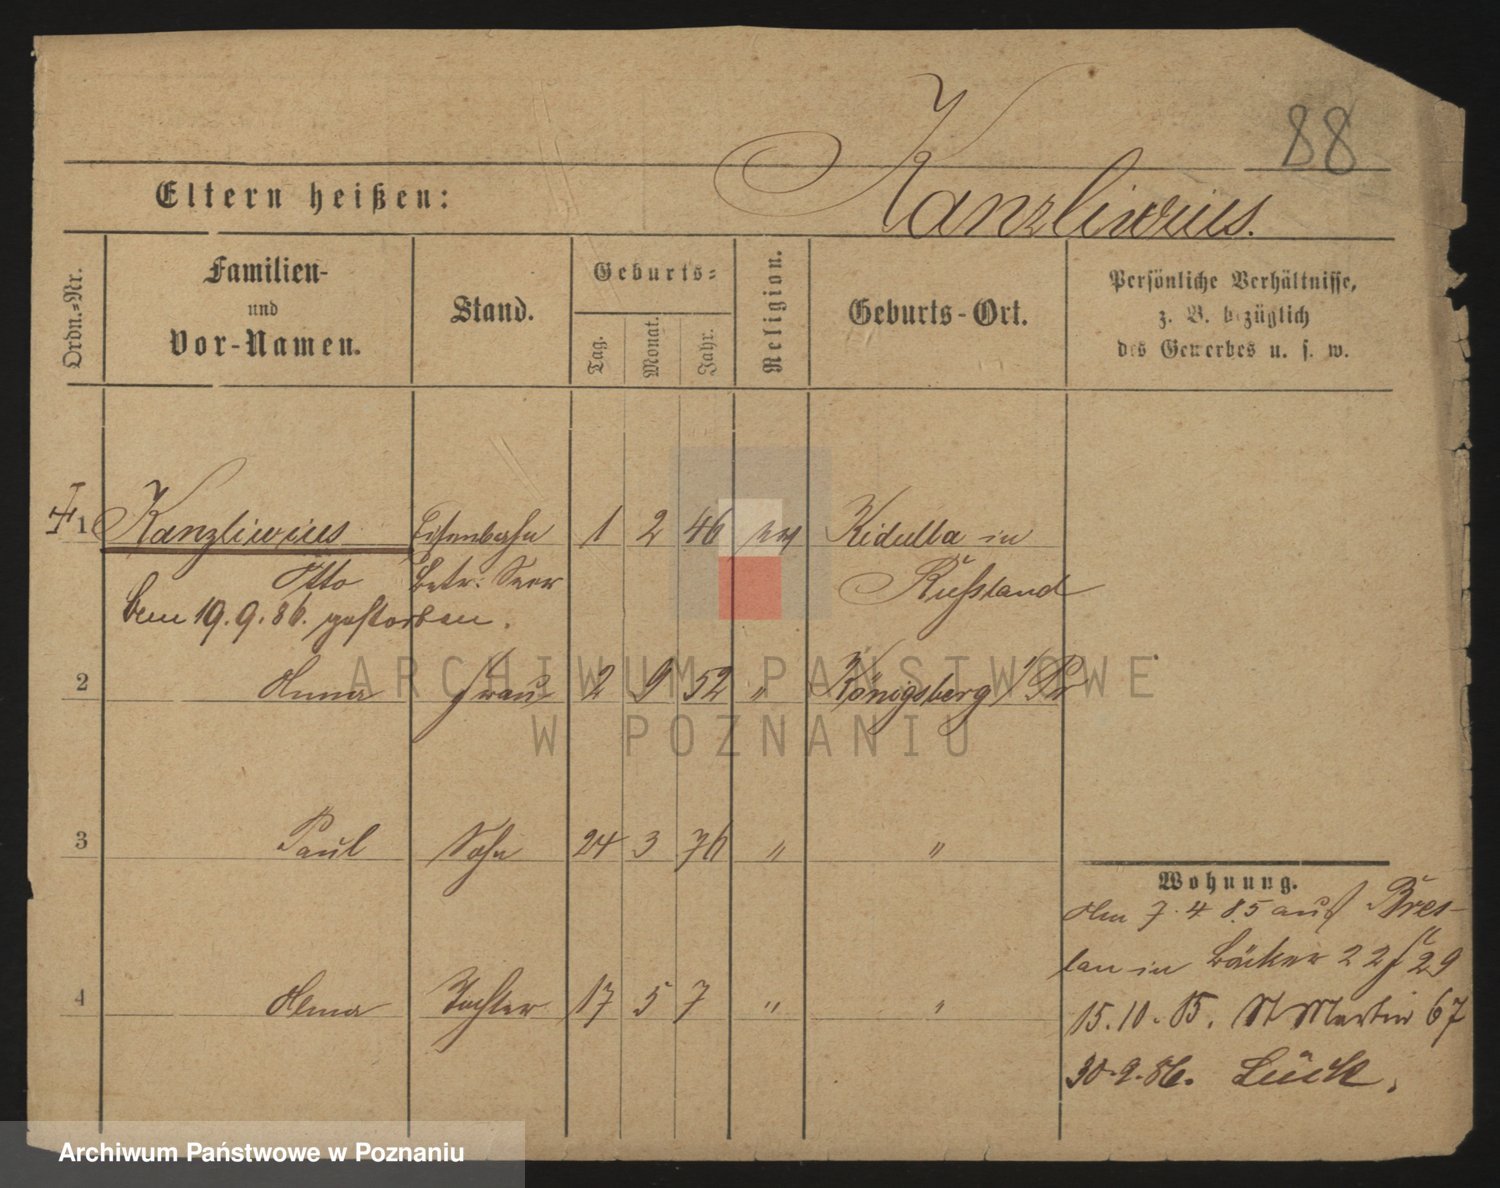 88
Eltern heißen:
Kanzliwius.
Ordn.-Nr.
Familien-
und
Vor-Namen.
Stand.
Geburts-
Tag.
Monat.
Jahr.
Religion.
Geburts-Ort.
Persönliche Verhältnisse,
z. B. bezüglich
des Gewerbes u. s. w.
1 Kanzliwius Eisenbahn 1 2 46 Kidulla in
Otto Betr: Secr Russland
19.9.86. gestorben.
2 Anna Frau 2 9 52 " Königsberg i/Pr
3 Paul Sohn 24 3 76 " "
4 Anna Tochter 17 5 7 " "
Wohnung.
Am 7.4 85 aus Bres-
lau in Bäcker 22 29
15.10.85. St Martin 67
30.9.86. Lück.
ARCHIWUM PAŃSTWOWE
W POZNANIU
Archiwum Państwowe w Poznaniu